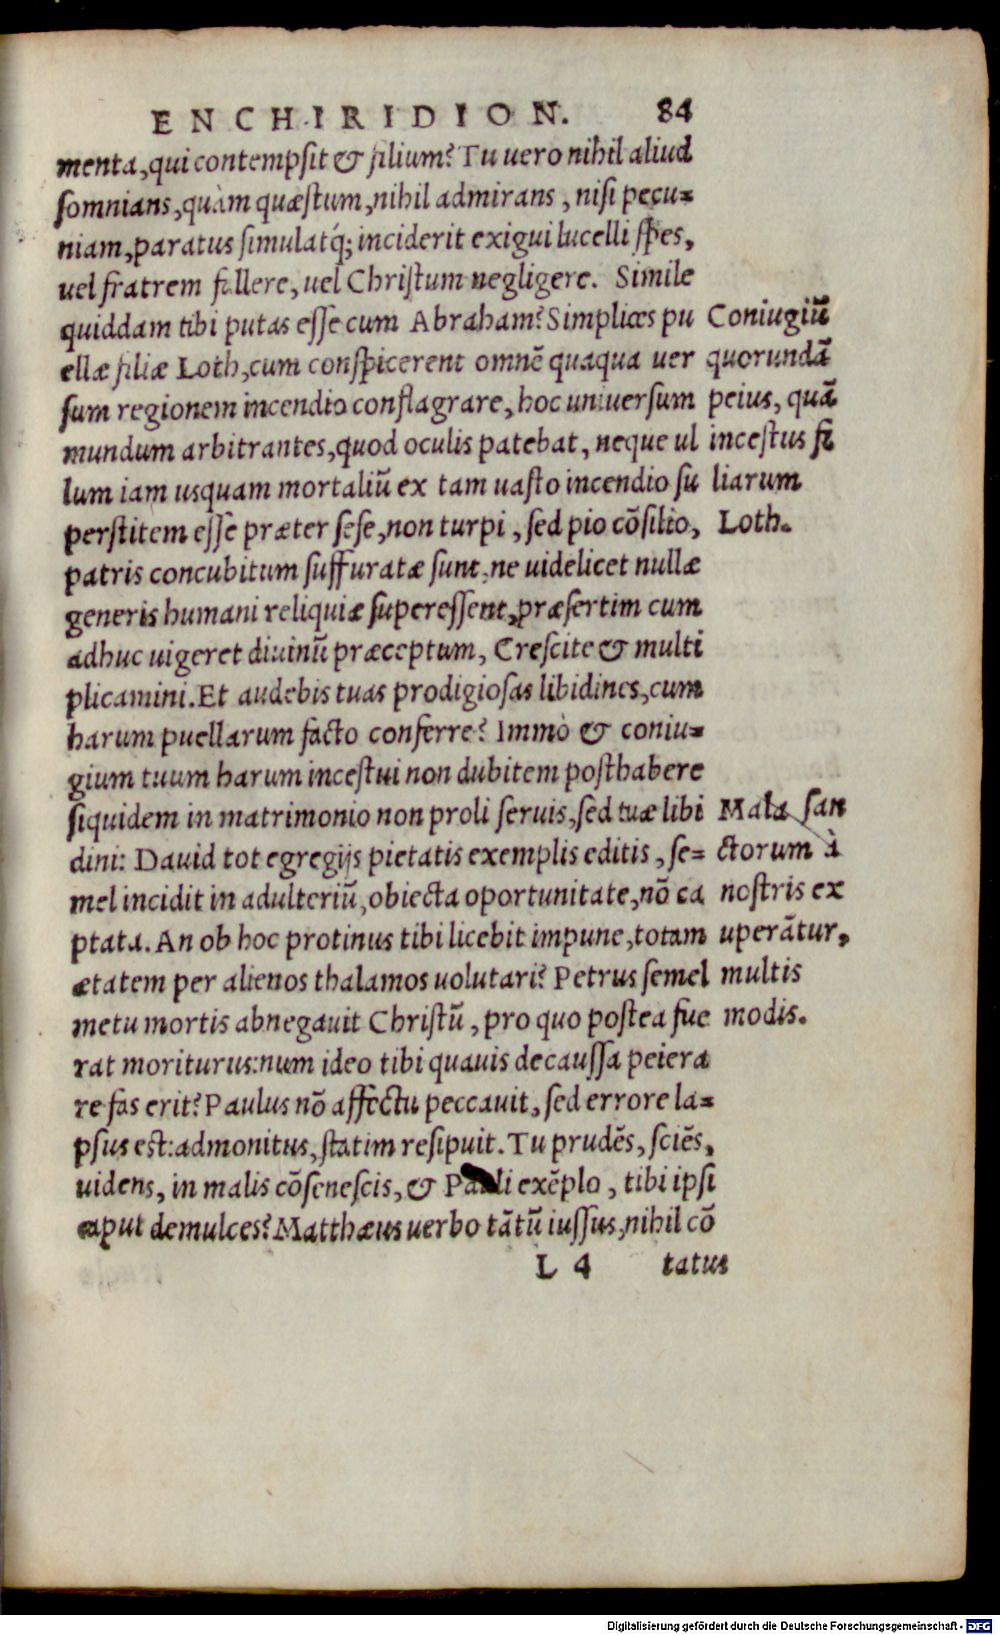 ENCHIRIDION. 84
menta, qui contempſit & filium? Tu uero nihil aliud
ſomnians, quàm quæſtum, nihil admirans, niſi pecu=
niam, paratus ſimulatq́; inciderit exigui lucelli ſpes,
uel fratrem fallere, uel Chriſtum negligere. Simile
quiddam tibi putas eſſe cum Abraham? Simplices pu
ellæ filiæ Loth, cum conſpicerent omnē quaqua uer
ſum regionem incendio conflagrare, hoc uniuerſum
mundum arbitrantes, quod oculis patebat, neque ul
lum iam usquam mortaliū ex tam uaſto incendio ſu
perſtitem eſſe præter ſeſe, non turpi, ſed pio cōſilio,
patris concubitum ſuffuratæ ſunt, ne uidelicet nullæ
generis humani reliquiæ ſupereſſent, præſertim cum
adhuc uigeret diuinū præceptum, Creſcite & multi
plicamini. Et audebis tuas prodigioſas libidines, cum
harum puellarum facto conferre? Immò & coniu=
gium tuum harum inceſtui non dubitem poſthabere
ſiquidem in matrimonio non proli ſeruis, ſed tuæ libi
dini: Dauid tot egregijs pietatis exemplis editis, ſe=
mel incidit in adulteriū, obiecta oportunitate, nō ca
ptata. An ob hoc protinus tibi licebit impune, totam
ætatem per alienos thalamos uolutari? Petrus ſemel
metu mortis abnegauit Chriſtū, pro quo poſtea fue
rat moriturus: num ideo tibi quauis de cauſſa peiera
re fas erit? Paulus nō affectu peccauit, ſed errore la=
pſus est: admonitus, ſtatim reſipuit. Tu prudēs, ſciēs,
uidens, in malis cōſeneſcis, & Pauli exēplo, tibi ipſi
caput demulces? Matthæus uerbo tātū iuſſus, nihil cō
L 4 tatus
Coniugiū
quorundā
peius, quā
inceſtus fi
liarum
Loth.
Mala ſan
ctorum à
noſtris ex
uperātur,
multis
modis.
Digitalisierung gefördert durch die Deutsche Forschungsgemeinschaft - DFG